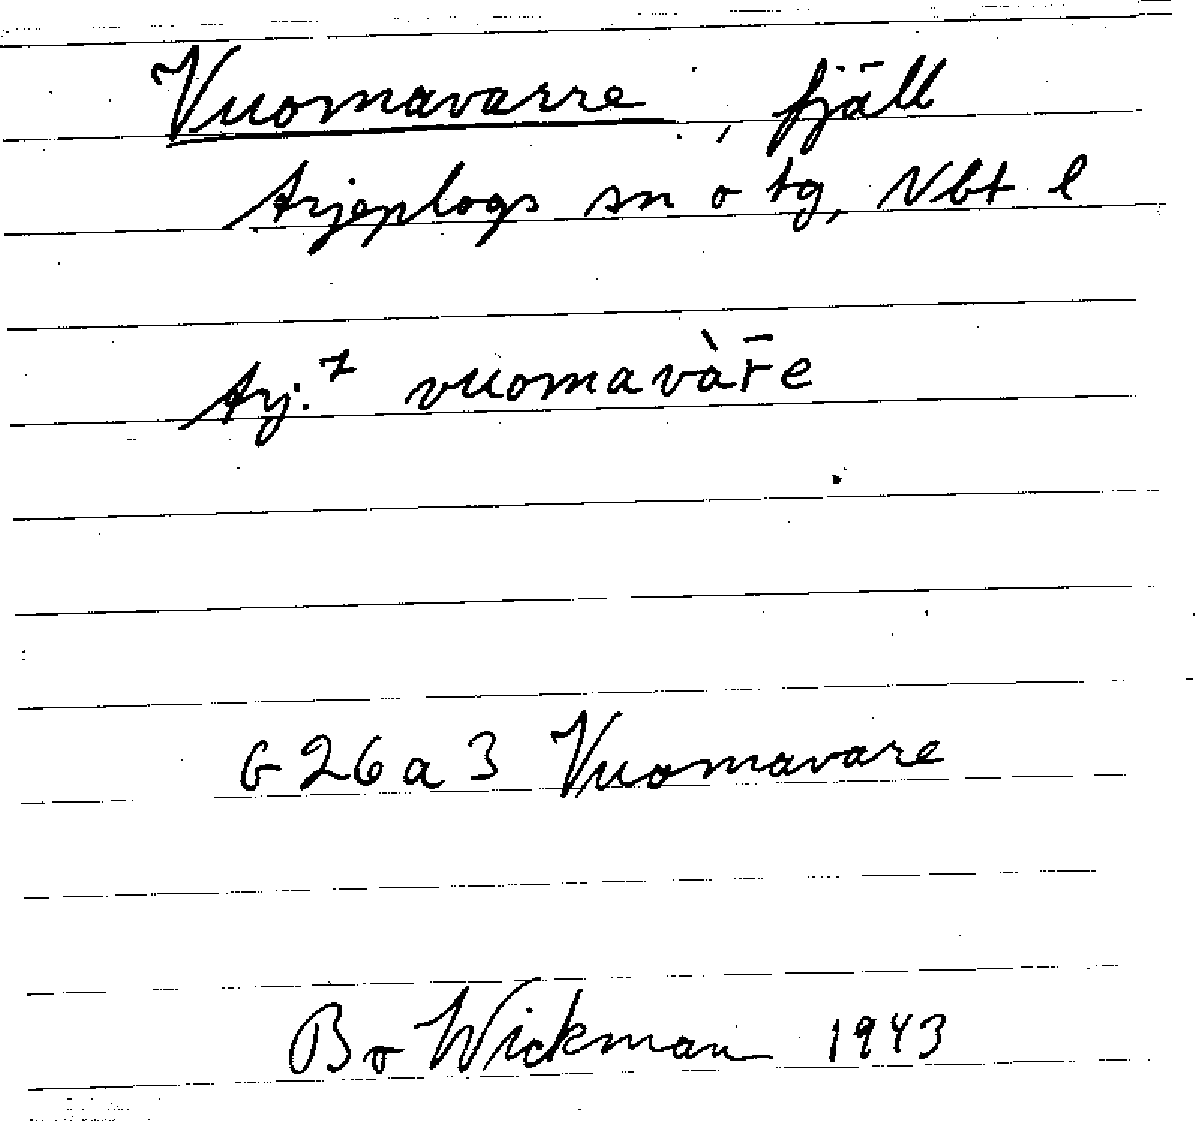 Vuomavarre, fjäll
Arjeplogs sn o tg, Vbt l
Arj.⁷ vuomavàr̄e
G 26 a 3 Vuomavare
Bo Wickman 1943